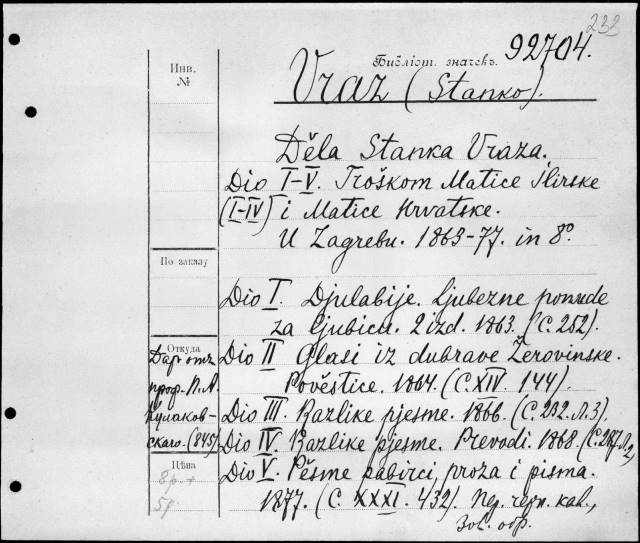 233
Библіот. значекъ. 92704.
Инв.
№
Vraz (Stanko).
Děla Stanka Vraza.
Dio I–V. Troškom Matice Ilirske
(I–IV) i Matice Hrvatske.
U Zagrebu. 1863–77. in 8º.
По заказу
Dio I. Djulabije. Ljubezne ponude
za Ljubicu. 2 izd. 1863. (C. 252).
Откуда
Даръ отъ
проф. П. А.
Кулаков-
скаго. (845)
Dio II Glasi iz dubrave Žerovinske.
Pověstice. 1864. (C. XIV. 144).
Dio III. Razlike pjesme. 1866. (C. 232. Л. 3).
Dio IV. Razlike pjesme. Prevodi. 1868. (C. 287. Л. 2)
Цѣна
8 р.
5 р
Dio V. Pěsme pabirci, proza i pisma.
1877. (C. XXXI. 432). Пер. черн. кол.,
зол. обр.